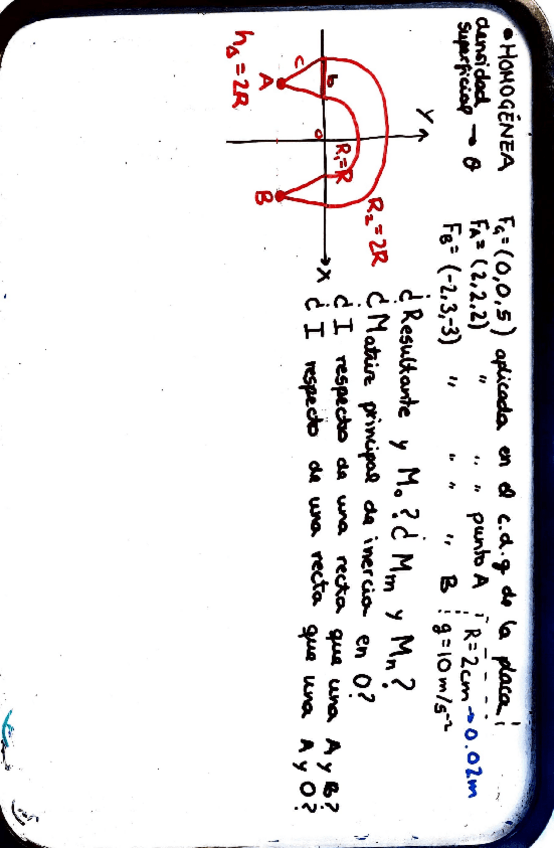 • HOMOGÉNEA
densidad
superficial → θ
F_G = (0,0,5) aplicada en el c.d.g de la placa ;
F_A = (2,2,2) " " " punto A ;
F_B = (-2,3,-3) " " " " B ;
R = 2cm → 0.02m
g = 10 m/s⁻²
¿ Resultante y M₀ ? ¿ M_m y M_n ?
¿ Matriz principal de inercia en O ?
¿ I respecto de una recta que una A y B ?
¿ I respecto de una recta que una A y O ?
Y
R₂ = 2R
R₁ = R
X
b
o
c
A
B
h_Δ = 2R